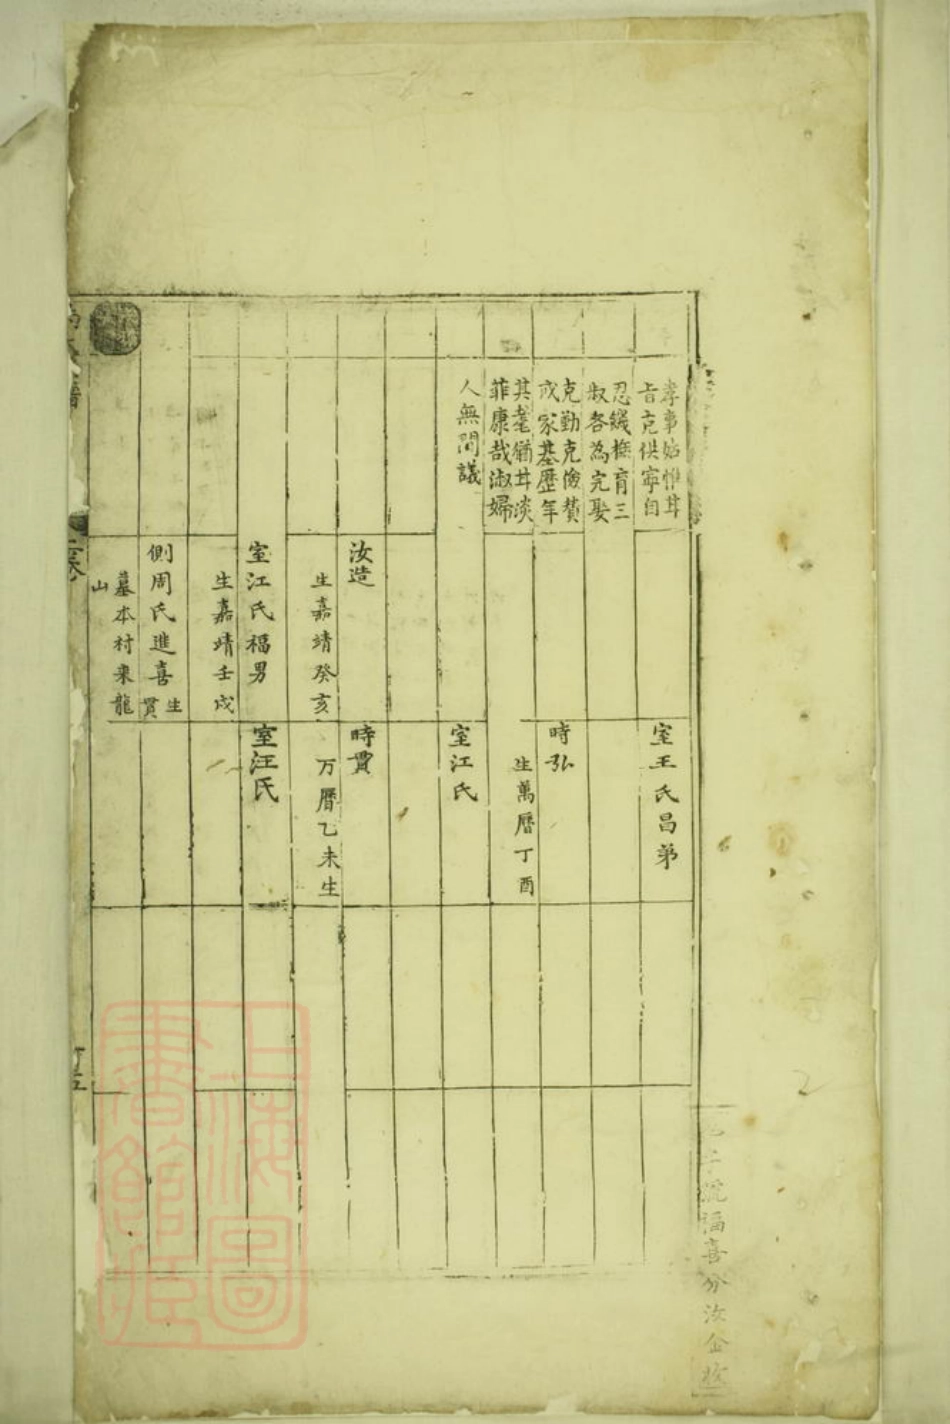 孝事姑惟甘
旨克供寧自
忍饑撫育三
叔各為完娶
克勤克儉贊
成家基歷年
其耄猶甘淡
菲康哉淑婦
人無間議
汝造
生嘉靖癸亥
室江氏福男
生嘉靖壬戌
側周氏進喜
生
貫
墓本村來龍
山
室王氏昌弟
時弘
生萬曆丁酉
室江氏
時貫
万曆乙未生
室汪氏
譜
卷
號福喜分汝金
上海圖書館藏